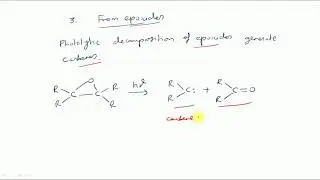 3. From epoxides
Photolytic decomposition of epoxides generate
carbenes.
R O R hν R C: + R C=O
R C C R R R
carbene